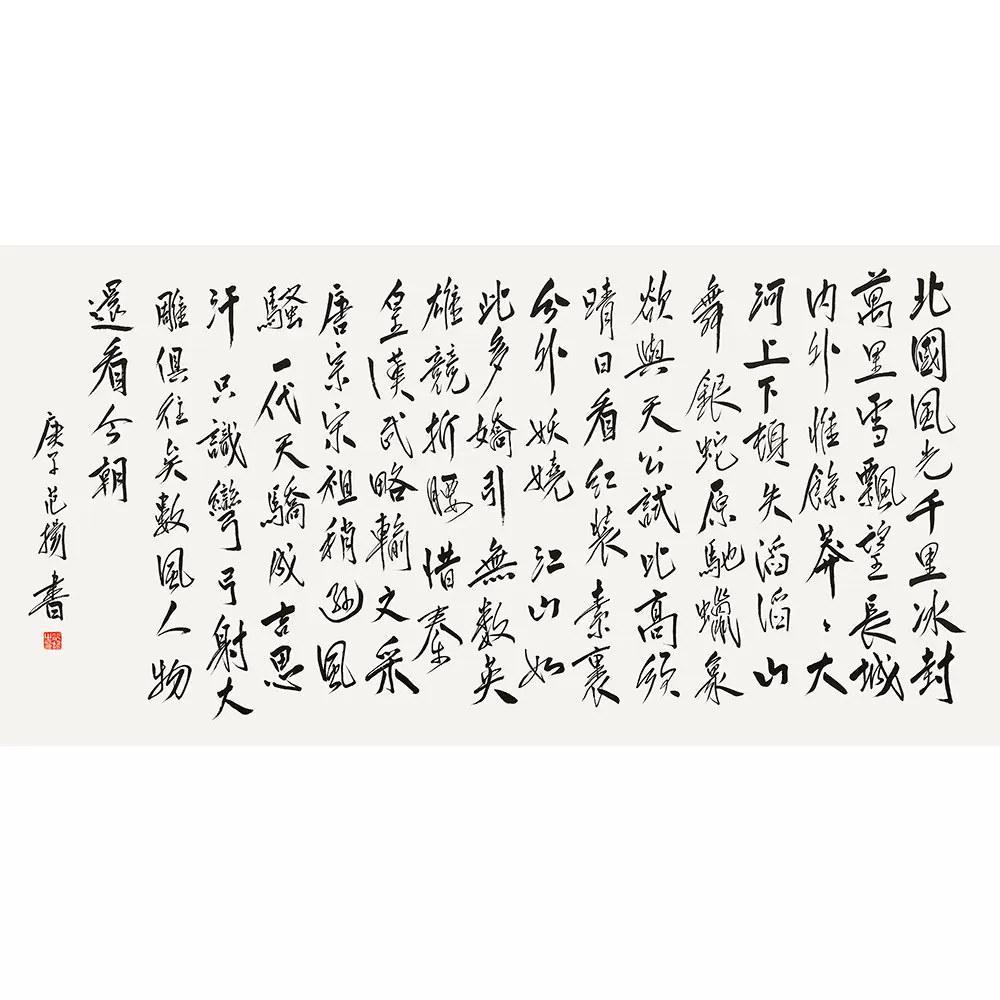 北國風光千里冰封
萬里雪飄望長城
内外惟餘莽〻大
河上下頓失滔滔山
舞銀蛇原馳蠟象
欲與天公試比高須
晴日看红装素裹
分外妖嬈江山如
此多嬌引無數英
雄競折腰惜秦
皇漢武略輸文采
唐宗宋祖稍遜風
騷一代天驕成吉思
汗只識彎弓射大
雕俱往矣數風人物
還看今朝
庚子范揚書